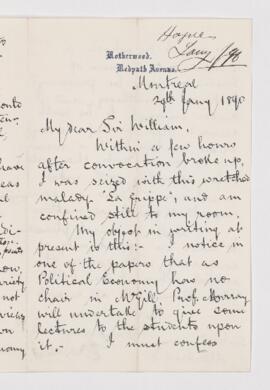 Hague
Jany /90
Rotherwood.
Redpath Avenue.
Montreal
29th Jany 1890
My dear Sir William,
Within a few hours
after convocation broke up,
I was seized with this wretched
malady "La Grippe", and am
confined still to my room.
My object in writing at
present is this:- I notice in
one of the papers that as
Political Economy has no
chair in McGill, Prof. Murray
will undertake to give some
lectures to the students upon
it.- I must confess